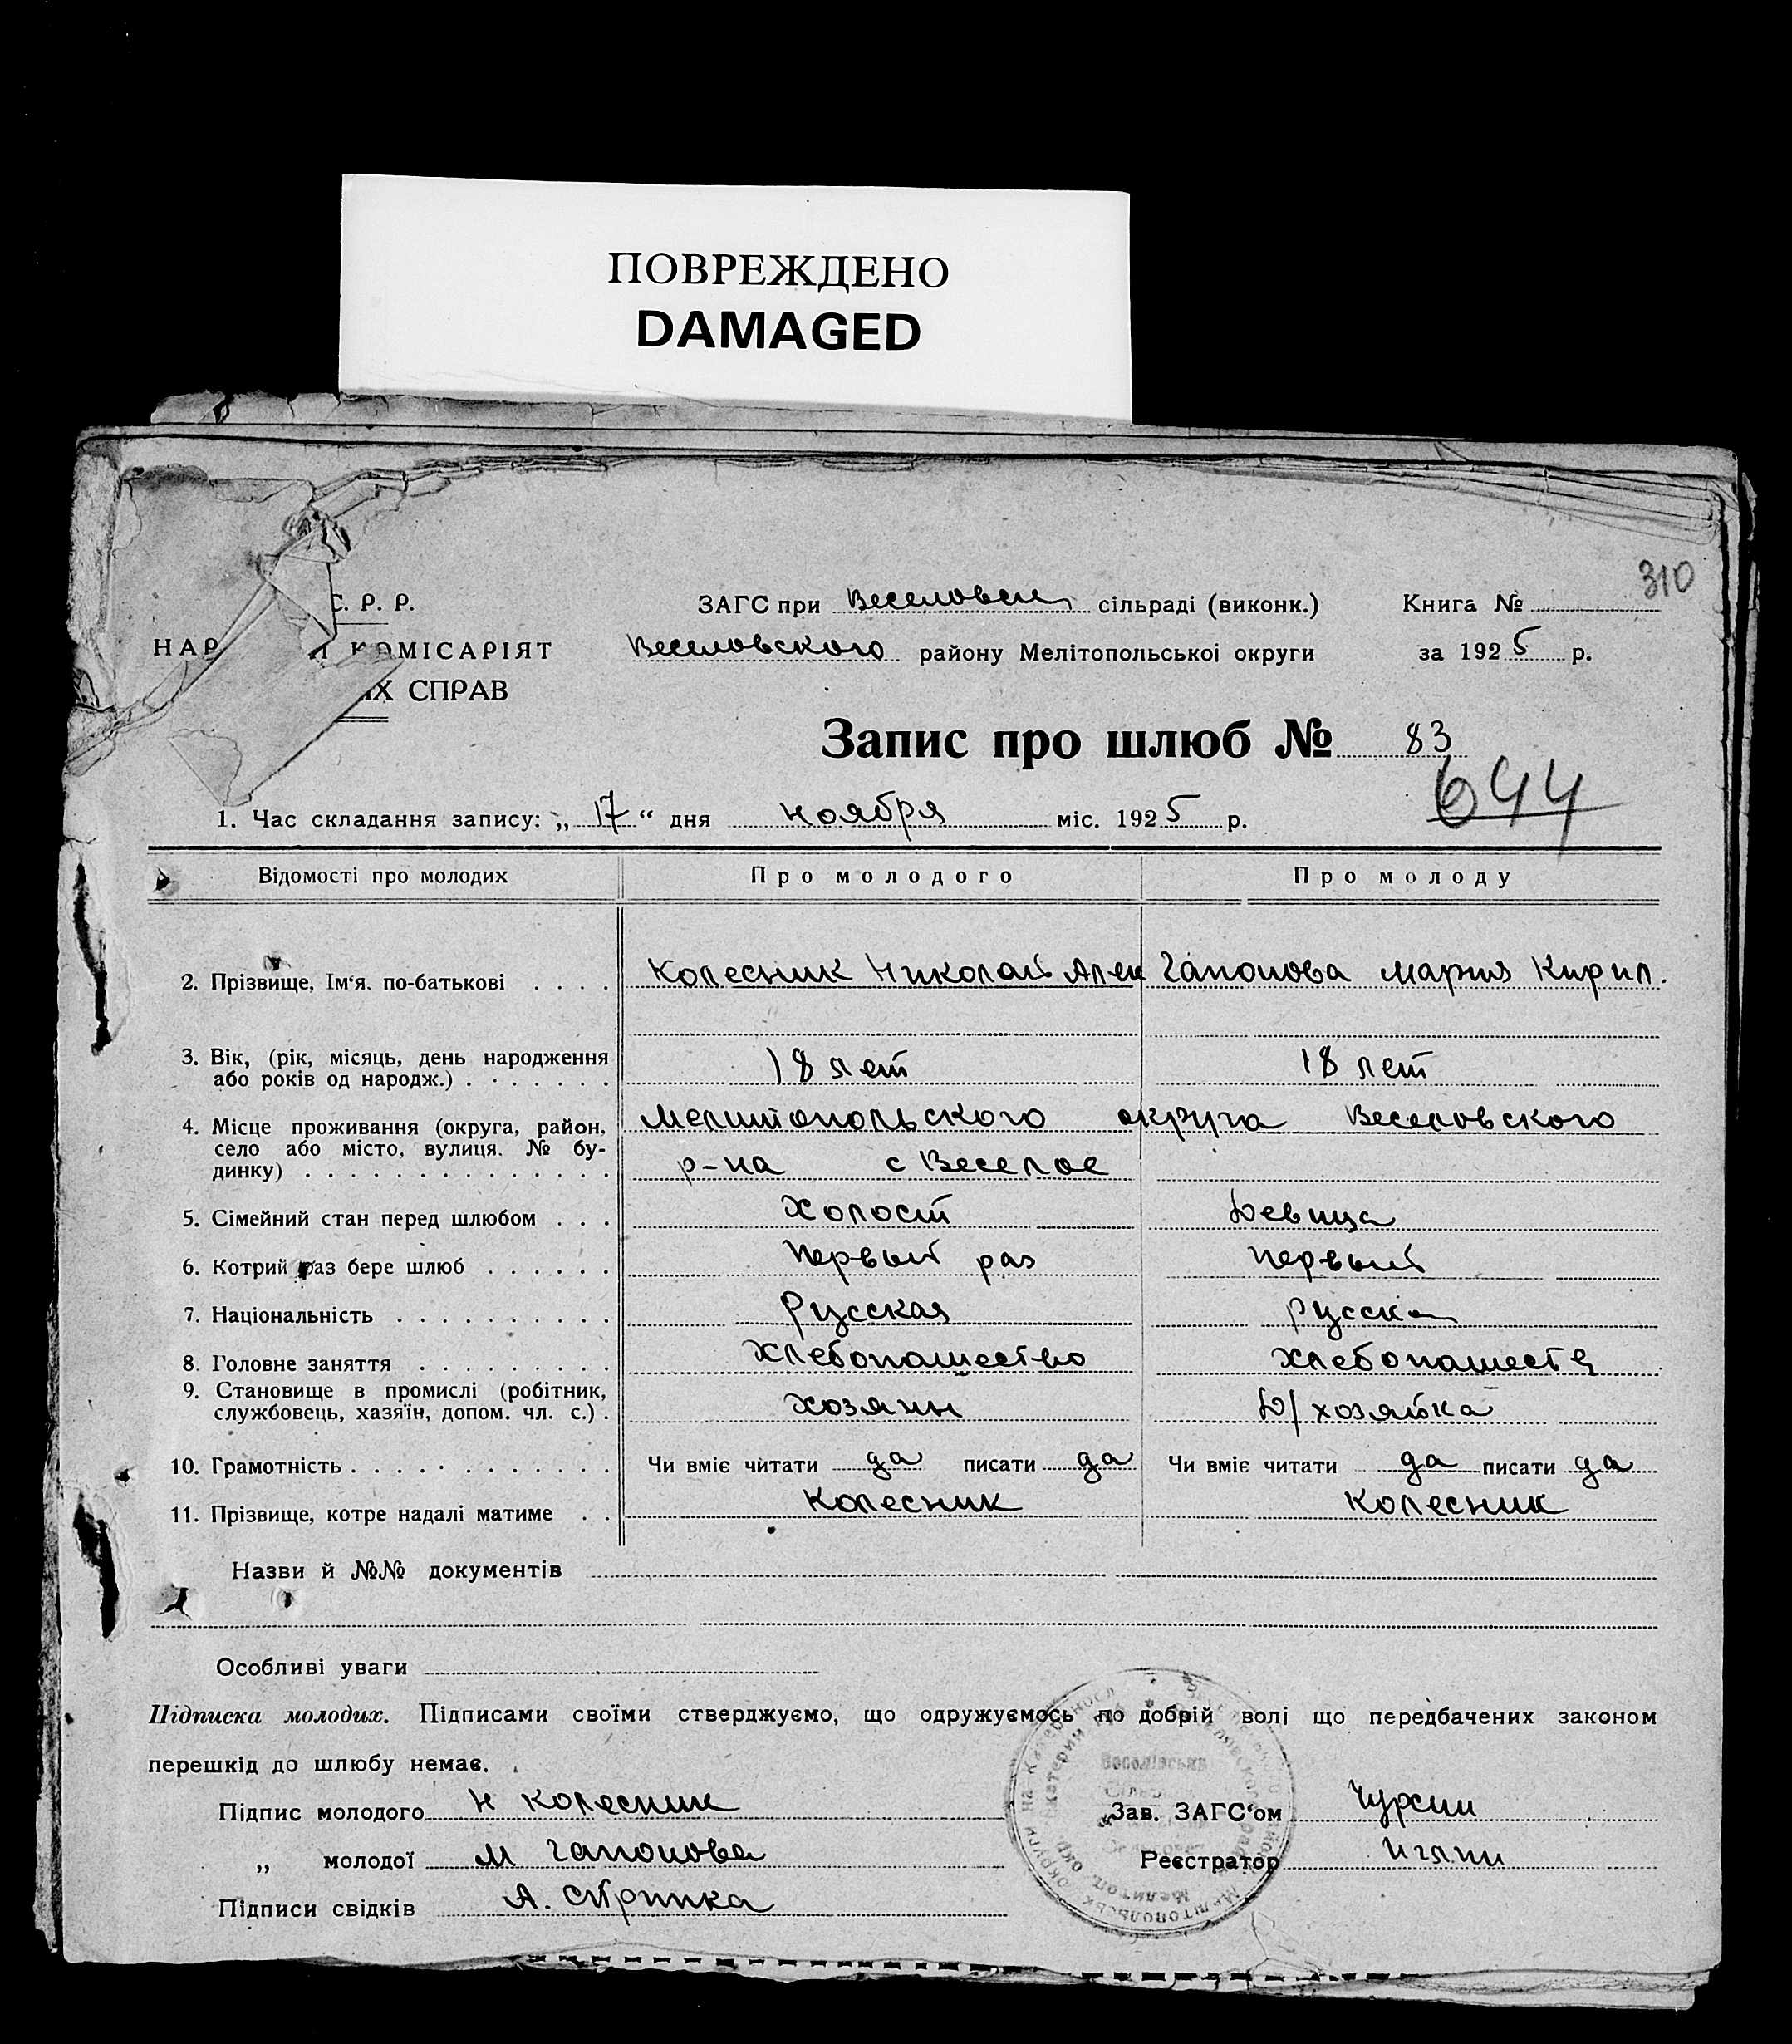 ПОВРЕЖДЕНО
DAMAGED
310
С. Р. Р. ЗАГС при Веселовск сільраді (виконк.) Книга №
НАР КОМІСАРІЯТ Веселовского району Мелітопольської округи за 1925 р.
ИХ СПРАВ
Запис про шлюб № 83
644
1. Час складання запису: „17“ дня ноября міс. 1925 р.
Відомості про молодих Про молодого Про молоду
2. Прізвище, Ім‘я. по-батькові . . . . Колесник Николай Алек Гапонова Мария Кирил.
3. Вік, (рік, місяць, день народження
або років од народж.) . . . . . . . 18 лет 18 лет
4. Місце проживання (округа, район, Мелитопольского округа Веселовского
село або місто, вулиця. № бу-
динку) . . . . . . . . . . . . . р-на с Веселое
5. Сімейний стан перед шлюбом . . . Холост Девица
6. Котрий раз бере шлюб . . . . . . Первый раз Первый
7. Національність . . . . . . . . . . Русская русска
8. Головне заняття . . . . . . . . . Хлебопашество Хлебопашеств
9. Становище в промислі (робітник,
службовець, хазяїн, допом. чл. с.) . Хозяин Д/хозяйка
10. Грамотність . . . . . . . . . . . . Чи вміє читати да писати да Чи вміє читати да писати да
11. Прізвище, котре надалі матиме . . Колесник Колесник
Назви й №№ документів
Особливі уваги
Підписка молодих. Підписами своїми стверджуємо, що одружуємось по добрій волі що передбачених законом
перешкід до шлюбу немає.
Підпис молодого Н Колесник Зав. ЗАГС‘ом Чурсин
„ молодої М Гапонова Реєстратор
Підписи свідків А.